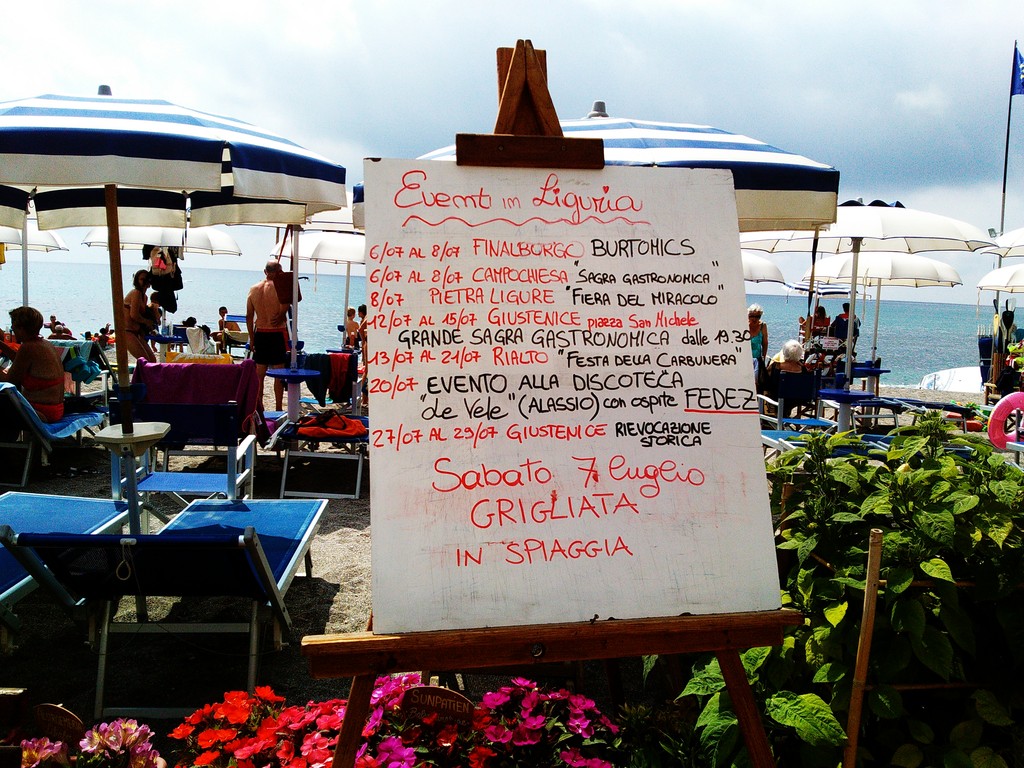 Eventi in Liguria
6/07 AL 8/07 FINALBORGO BURTOMICS
6/07 AL 8/07 CAMPOCHIESA "SAGRA GASTRONOMICA"
8/07 PIETRA LIGURE "FIERA DEL MIRACOLO"
12/07 AL 15/07 GIUSTENICE piazza San Michele
GRANDE SAGRA GASTRONOMICA dalle 19.30
13/07 AL 21/07 RIALTO "FESTA DELLA CARBUNERA"
20/07 EVENTO ALLA DISCOTECA
"Le Vele" (ALASSIO) con ospite FEDEZ
27/07 AL 29/07 GIUSTENICE RIEVOCAZIONE
STORICA
Sabato 7 luglio
GRIGLIATA
IN SPIAGGIA
SUNPATIEN